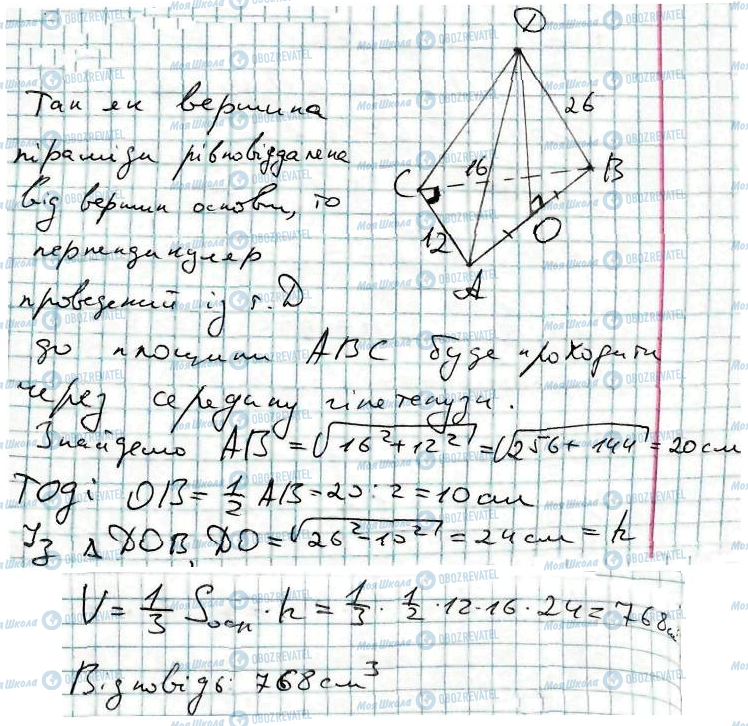 D
26
16
C
B
12
O
A
Так як вершина
піраміди рівновіддалена
від вершин основи, то
перпендикуляр
проведений із т. D
до площини ABC буде проходити
через середину гіпотенузи.
Знайдемо AB = √(16² + 12²) = √(256 + 144) = 20 см
Тоді OB = 1/2 AB = 20 : 2 = 10 см
Із Δ DOB, DO = √(26² - 10²) = 24 см = h
V = 1/3 Sосн · h = 1/3 · 1/2 · 12 · 16 · 24 = 768 см
Відповідь: 768 см³
Моя Школа OBOZREVATEL